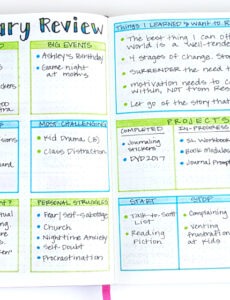 ary Review
BIG EVENTS
Ashley's Birthday
Game night
at mom's
MOST CHALLENGING
Kid Drama
Class Distraction
PERSONAL STRUGGLES
Fear/Self-Sabotage
Church
Nighttime Anxiety
Self-Doubt
Procrastination
Things I LEARNED & Want to R
The best thing I can off
World is a Well-tende
4 stages of Change. Sto
SURRENDER the need t
motivation needs to c
within, NOT from Res
Let go of the story that
PROJECTS
COMPLETED
IN-PROGRESS
Journaling
Stickers
DYD2017
SL Workbook
Book Modules
Journal Promp
START
STOP
Talk-to-Scott
List
Reading
Fiction
Complaining
Venting
frustration
at kids